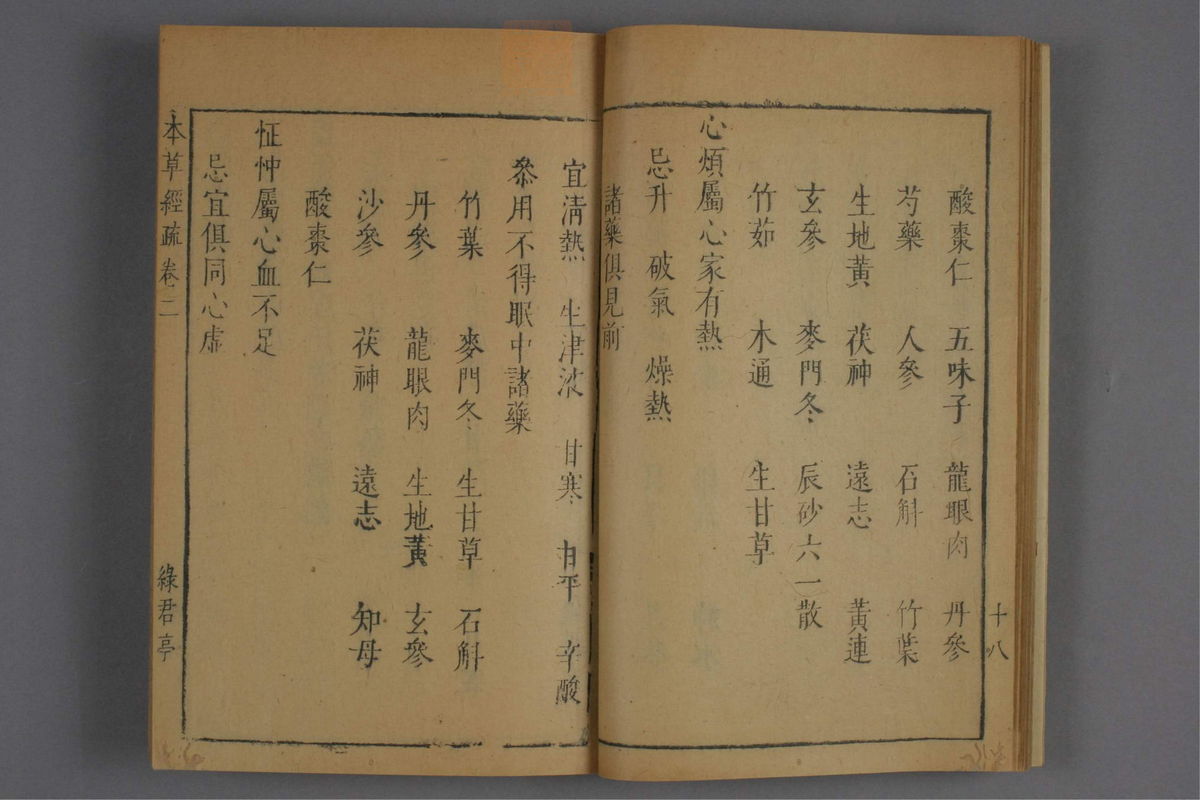 十八
酸棗仁　五味子　龍眼肉　丹參
芍藥　人參　石斛　竹葉
生地黃　茯神　遠志　黃連
玄參　麥門冬　辰砂六一散
竹茹　木通　生甘草
心煩屬心家有熱
忌升　破氣　燥熱
諸藥俱見前
宜清熱　生津液　甘寒　甘平　辛酸
叅用不得眠中諸藥
竹葉　麥門冬　生甘草　石斛
丹參　龍眼肉　生地黃　玄參
沙參　茯神　遠志　知母
酸棗仁
怔忡屬心血不足
忌宜俱同心虛
本草經疏卷二　綠君亭